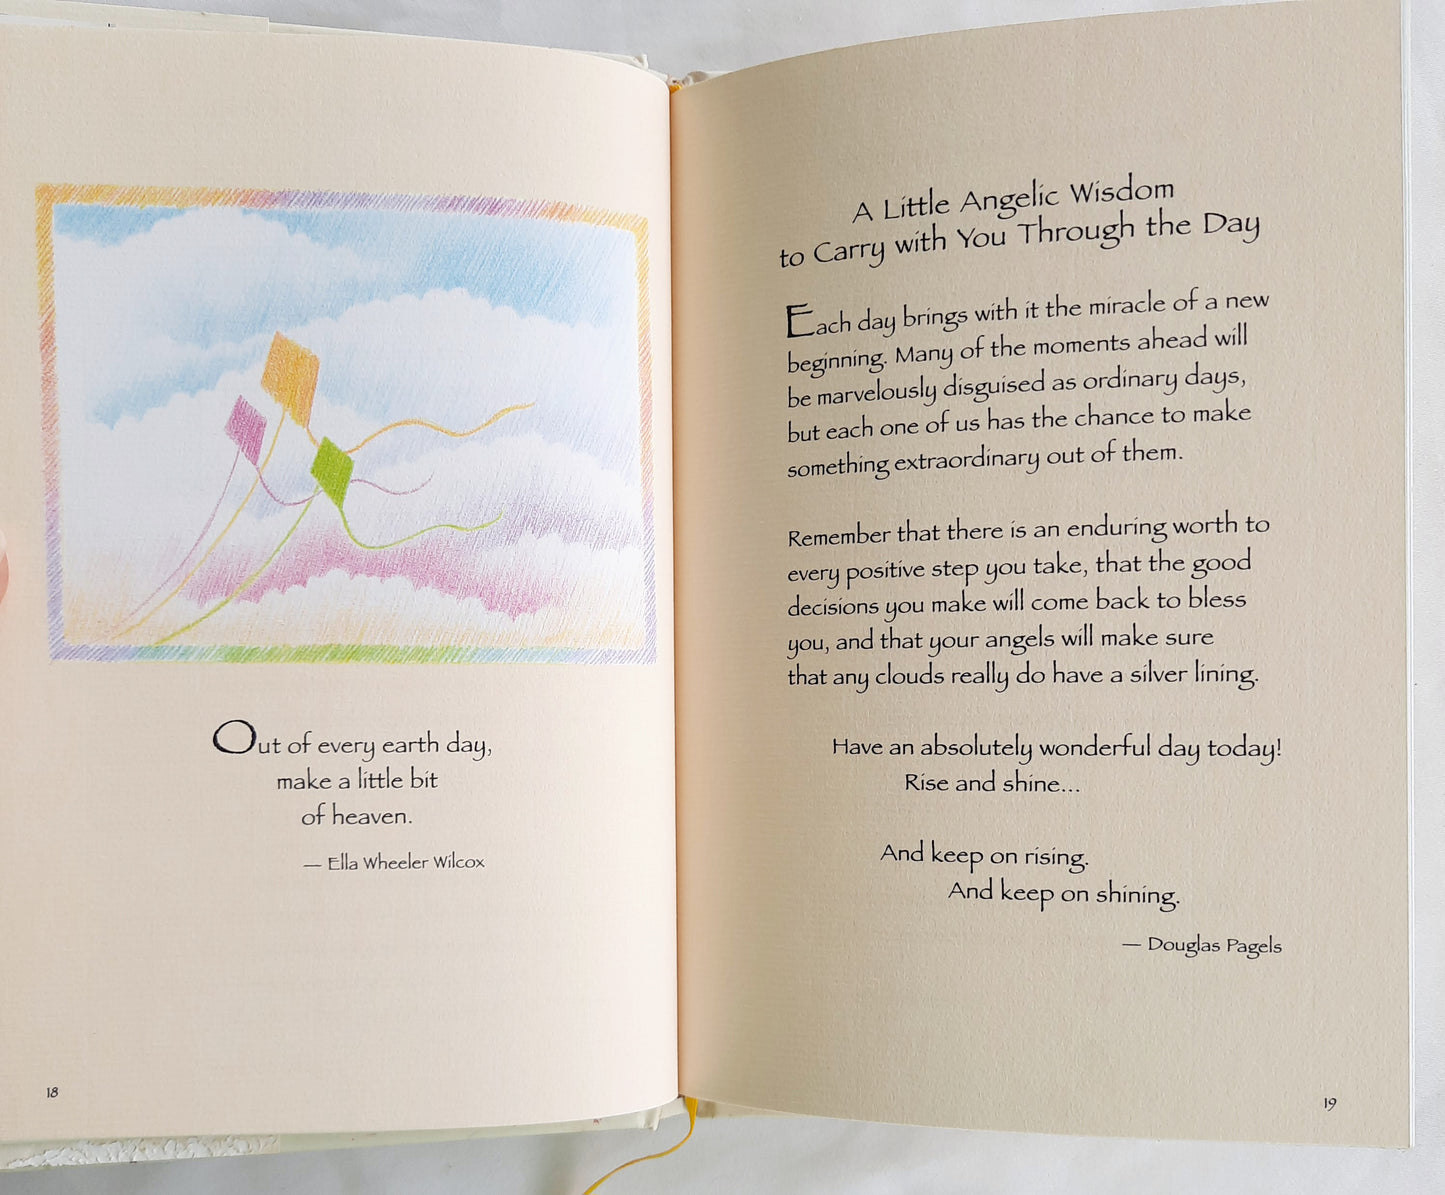 Out of every earth day,
make a little bit
of heaven.
— Ella Wheeler Wilcox
18
A Little Angelic Wisdom
to Carry with You Through the Day
Each day brings with it the miracle of a new
beginning. Many of the moments ahead will
be marvelously disguised as ordinary days,
but each one of us has the chance to make
something extraordinary out of them.
Remember that there is an enduring worth to
every positive step you take, that the good
decisions you make will come back to bless
you, and that your angels will make sure
that any clouds really do have a silver lining.
Have an absolutely wonderful day today!
Rise and shine...
And keep on rising.
And keep on shining.
— Douglas Pagels
19